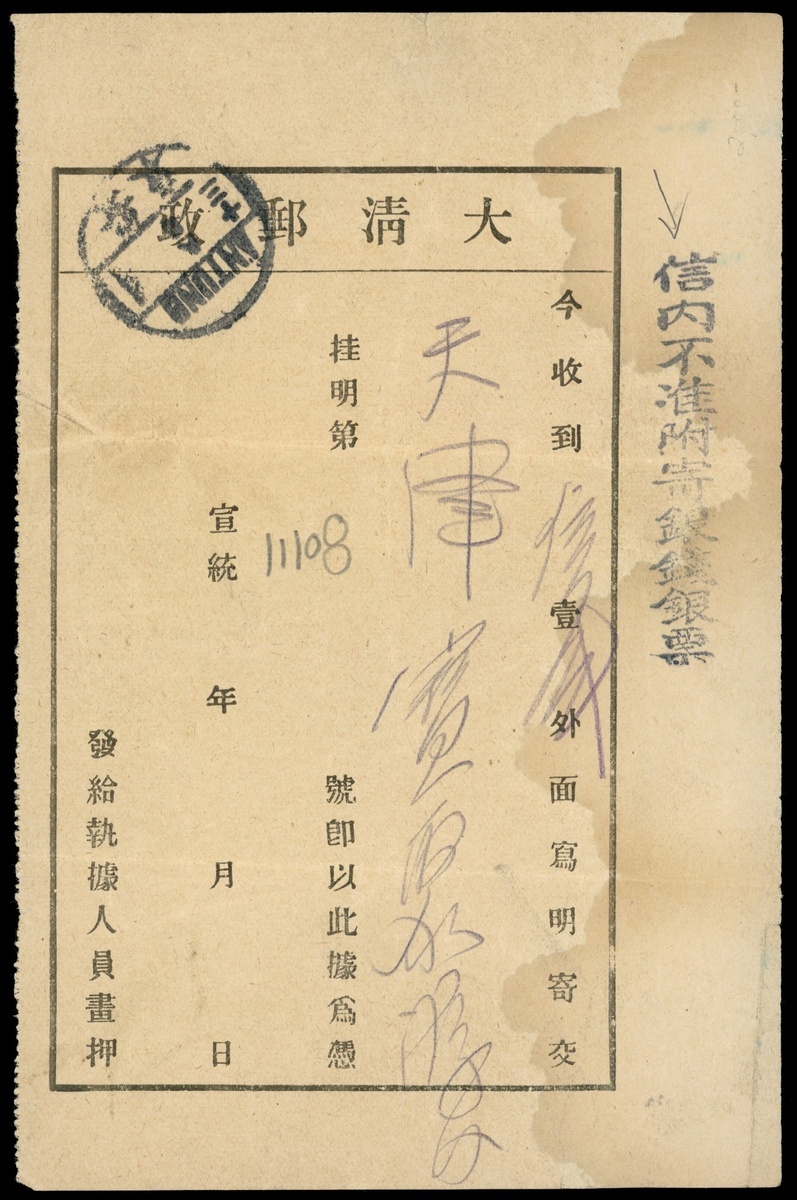 大清郵政
ANTUNG
信內不准附寄銀錢銀票
今收到
壹
外面寫明寄交
天津
挂明第
11108
號卽以此據爲憑
宣統 年 月 日
發給執據人員畫押